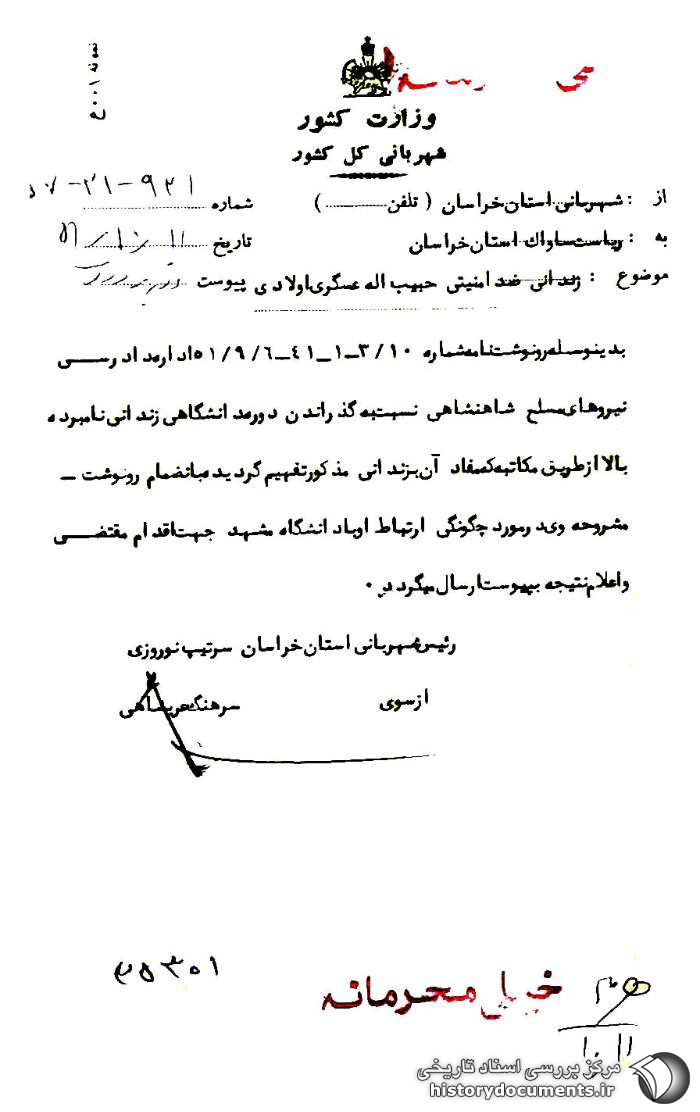 نمونه ۱۰۰۰ع
وزارت کشور
شهربانی کل کشور
از : شهربانی استان خراسان ( تلفن ............ ) شماره
به : ریاست ساواك استان خراسان تاریخ
موضوع : زندانی ضد امنیتی حبیب اله عسگری اولادی پیوست
بدینوسیله رونوشت نامه شماره ۳/۱۰ـ۱ـ۴۱ـ۵۱/۹/۶ اداره دادرسی
نیروهای مسلح شاهنشاهی نسبت به گذراندن دوره دانشگاهی زندانی نامبرده
بالا از طریق مکاتبه که مفاد آن بزندانی مذکور تفهیم گردیده بانضمام رونوشت ـ
مشروحه وی در مورد چگونگی ارتباط او با دانشگاه مشهد جهت اقدام مقتضی
و اعلام نتیجه بپیوست ارسال میگردد ۰
رئیس شهربانی استان خراسان سرتیپ نوروزی
از سوی سرهنگ
۳۵۳۰۱
خیلی محرمانه
مرکز بررسی اسناد تاریخی
historydocuments.ir